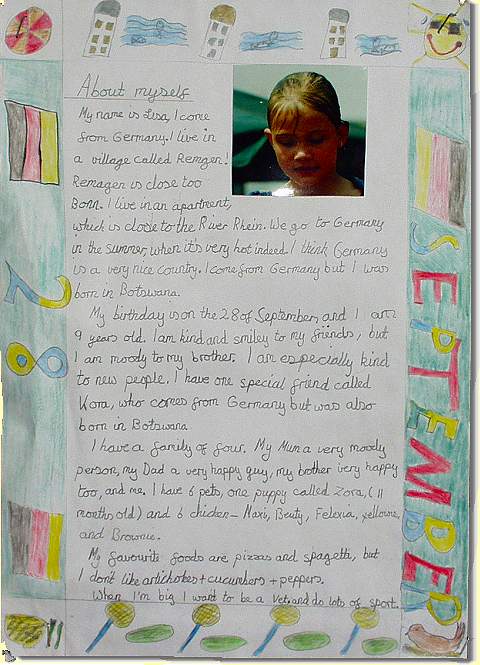 About myself
My name is Lisa, I come
from Germany. I live in
a village called Remgen!
Remagen is close too
Bonn. I live in an apartment,
which is close to the River Rhein. We go to Germany
in the summer, when it's very hot indeed. I think Germany
is a very nice country. I come from Germany but I was
born in Botswana.
My birthday is on the 28 of September, and I am
9 years old. I am kind and smiley to my friends, but
I am moody to my brother. I am especially kind
to new people. I have one special friend called
Kora, who comes from Germany but was also
born in Botswana
I have a family of four. My Mum a very moody
person, my Dad a very happy guy, my brother very happy
too, and me. I have 6 pets, one puppy called Zora, (11
months old) and 6 chicken - Maxi, Beuty, Felexia, yellowne,
and Brownie.
My favourite foods are pizzas and spagetti, but
I don't like artichokes + cucumbers + peppers.
When I'm big I want to be a Vet, and do lots of sport.
28
SEPTEMBER